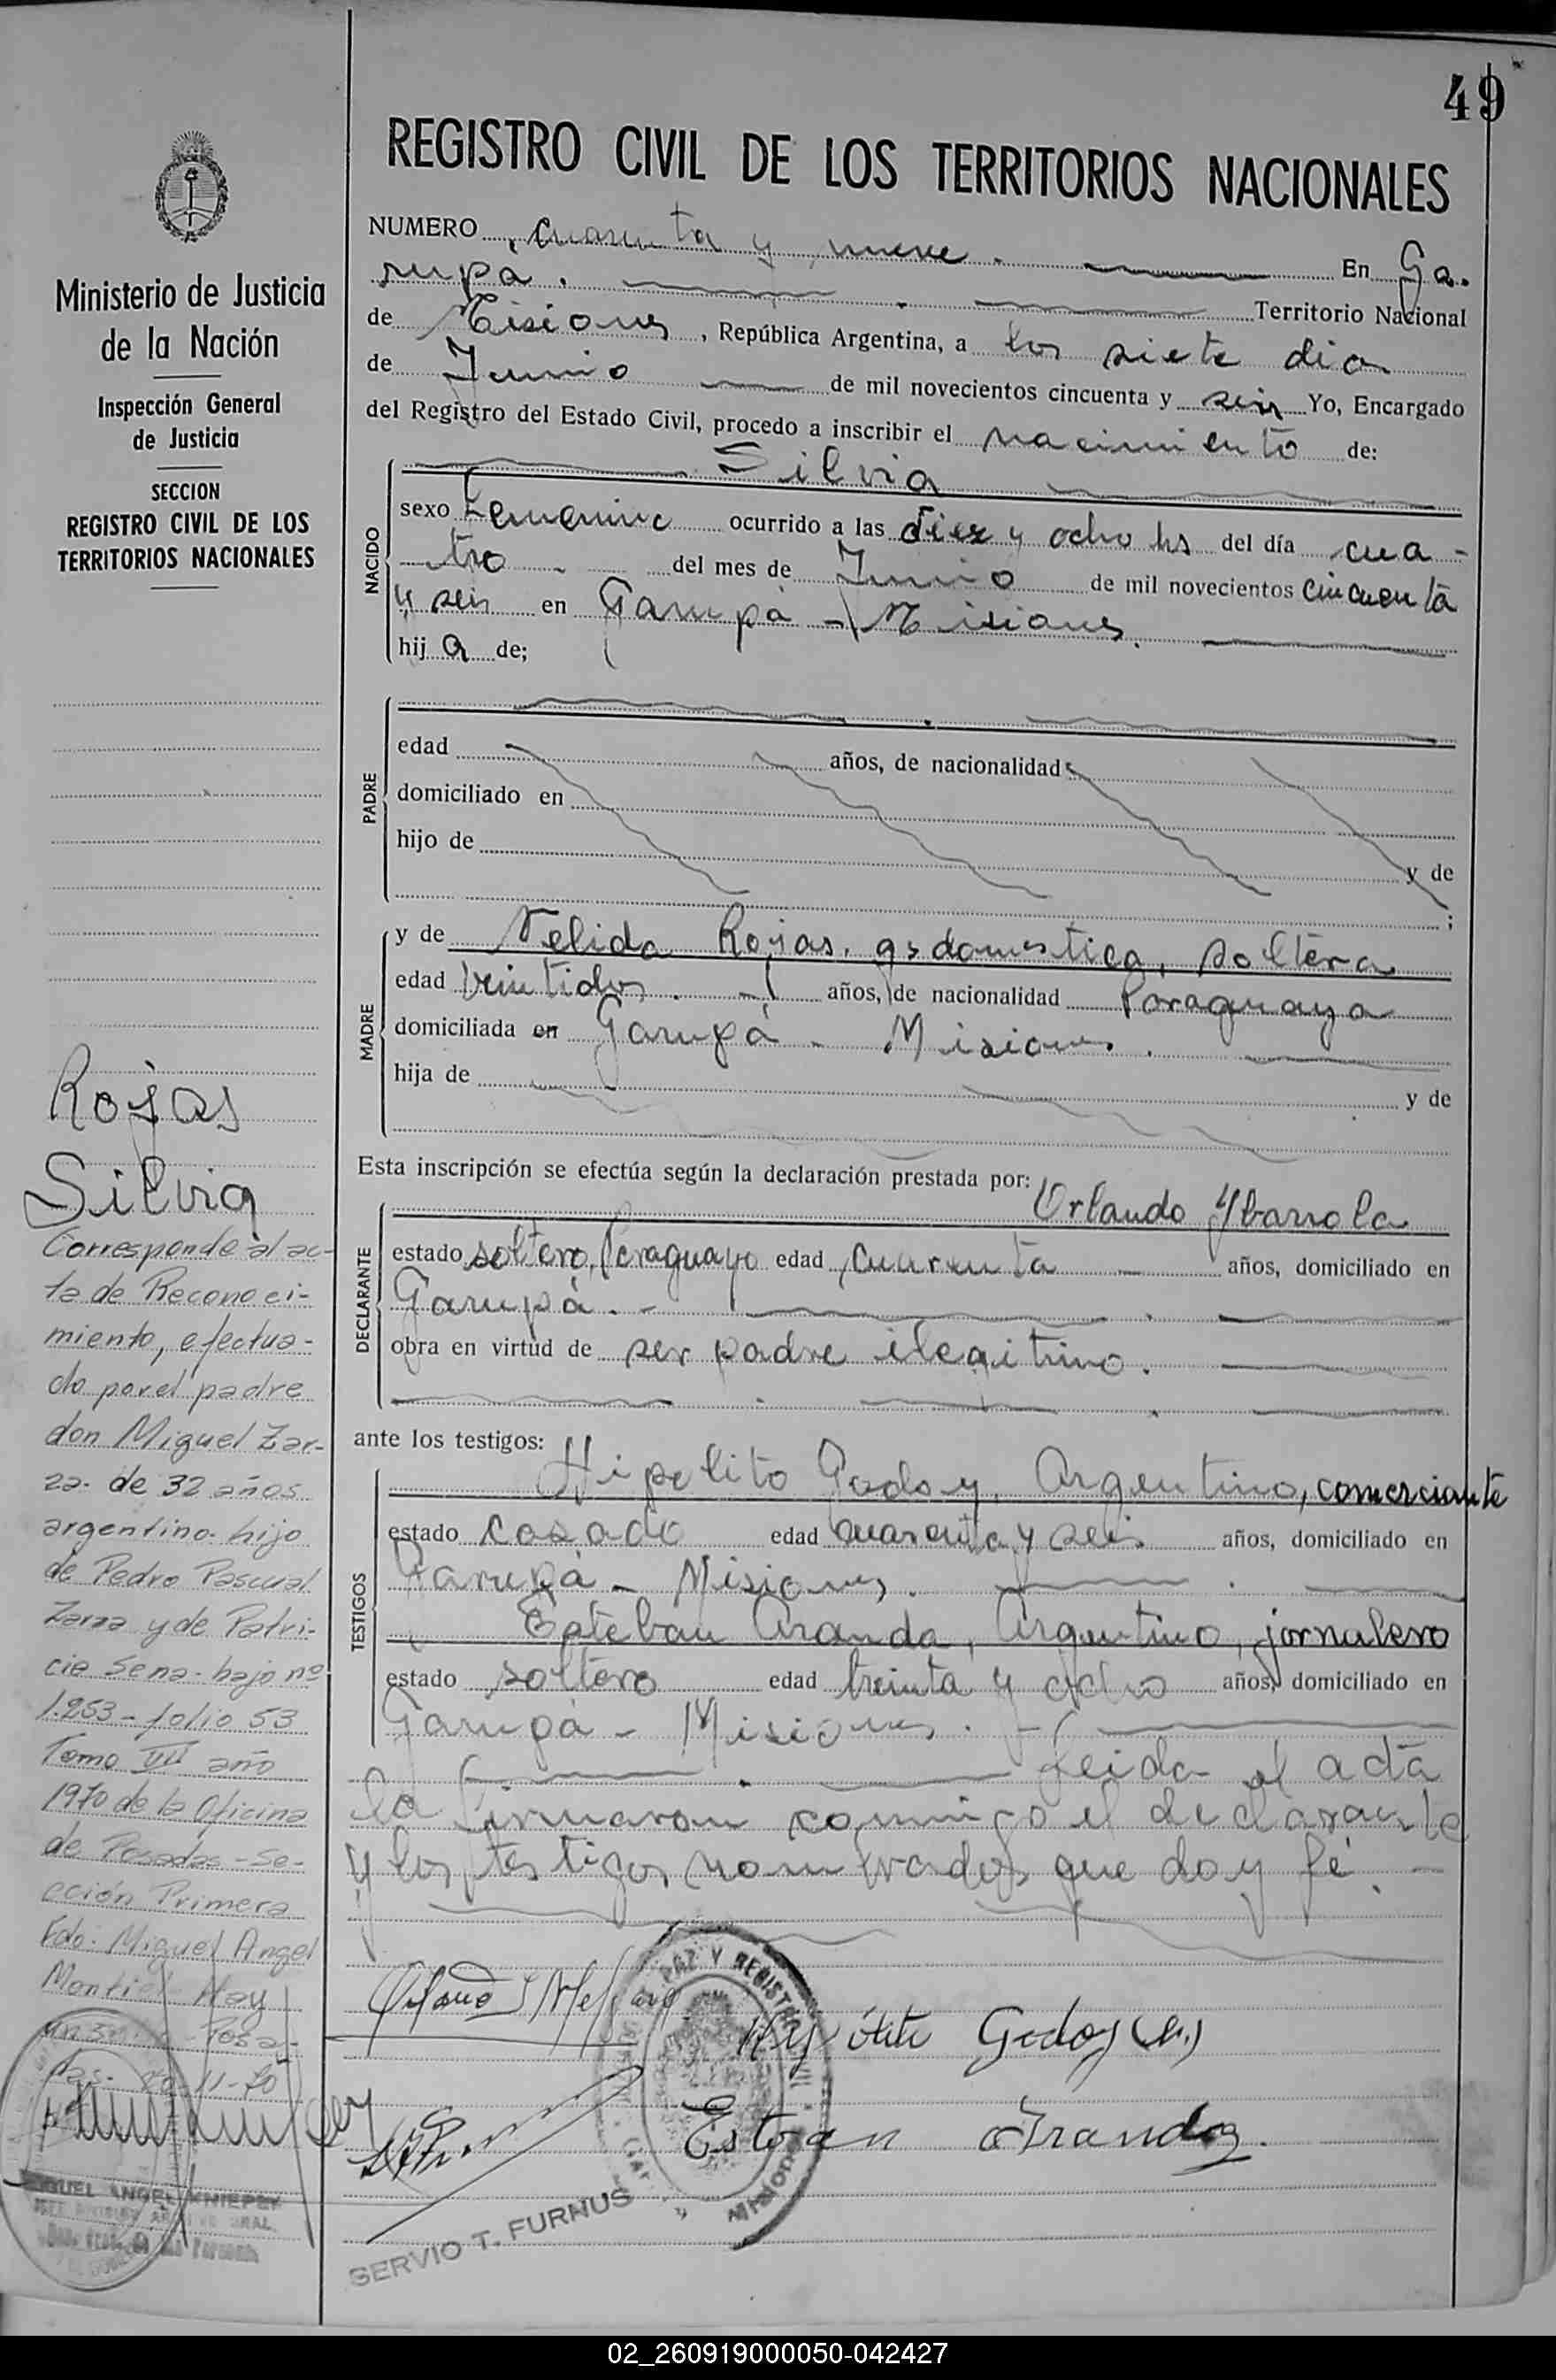 49
REGISTRO CIVIL DE LOS TERRITORIOS NACIONALES
NUMERO cuarenta y nueve. En Ga-
rupá. Territorio Nacional
de Misiones, República Argentina, a los siete dia
de Junio de mil novecientos cincuenta y seis Yo, Encargado
del Registro del Estado Civil, procedo a inscribir el nacimiento de:
Silvia
NACIDO
sexo Femenino ocurrido a las diez y ocho hs del día cua-
tro del mes de Junio de mil novecientos cincuenta
y seis en Garupá - Misiones.
hija de;
PADRE
edad años, de nacionalidad
domiciliado en
hijo de y de
;
MADRE
y de Nelida Rojas. qs domestica, soltera
edad veintidos. años, de nacionalidad Paraguaya
domiciliada en Garupá - Misiones.
hija de y de
Esta inscripción se efectúa según la declaración prestada por:
Orlando Ybarrola
DECLARANTE
estado soltero, Paraguayo edad cuarenta años, domiciliado en
Garupá. -
obra en virtud de ser padre ilegitimo.
ante los testigos:
TESTIGOS
Hipolito Godoy, Argentino, comerciante
estado casado edad cuarenta y seis años, domiciliado en
Garupá - Misiones.
Esteban Aranda, Argentino, jornalero
estado soltero edad treinta y ocho años, domiciliado en
Garupá - Misiones.
Leida el acta
la firmaron conmigo el declarante
y los testigos nombrados que doy fé. -
Hipólito Godoy
Esteban Aranda
PAZ Y REGISTRO
MISIONES
SERVIO T. FURNUS
Ministerio de Justicia
de la Nación
Inspección General
de Justicia
SECCION
REGISTRO CIVIL DE LOS
TERRITORIOS NACIONALES
Rojas
Silvia
Corresponde al ac-
ta de Reconoci-
miento, efectua-
do por el padre
don Miguel Zar-
za. de 32 años
argentino. hijo
de Pedro Pascual
Zarza y de Patri-
cia Sena. bajo nº
1.253 - folio 53
Tomo VII año
1970 de la Oficina
de Posadas - Se-
cción Primera
Fdo. Miguel Angel
Montiel Hay
un sello - Posa-
das. 20-11-70
MIGUEL ANGEL KNIEPEY
02_260919000050-042427